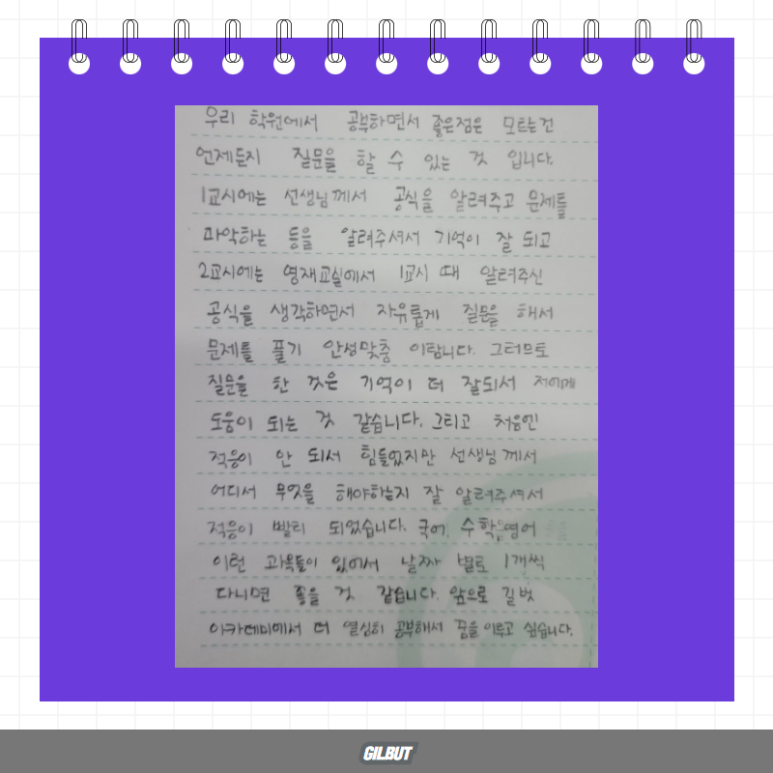 우리 학원에서 공부하면서 좋은점은 모르는건
언제든지 질문을 할 수 있는 것 입니다.
1교시에는 선생님께서 공식을 알려주고 문제를
파악하는 등을 알려주셔서 기억이 잘 되고
2교시에는 영재교실에서 1교시 때 알려주신
공식을 생각하면서 자유롭게 질문을 해서
문제를 풀기 안성맞춤 이랍니다. 그러므로
질문을 한 것은 기억이 더 잘되서 저에게
도움이 되는 것 같습니다. 그리고 처음엔
적응이 안 되서 힘들었지만 선생님께서
어디서 무엇을 해야하는지 잘 알려주셔서
적응이 빨리 되었습니다. 국어, 수학, 영어
이런 과목들이 있어서 날짜 별로 1개씩
다니면 좋을 것 같습니다. 앞으로 길벗
아카데미에서 더 열심히 공부해서 꿈을 이루고 싶습니다.
GILBUT